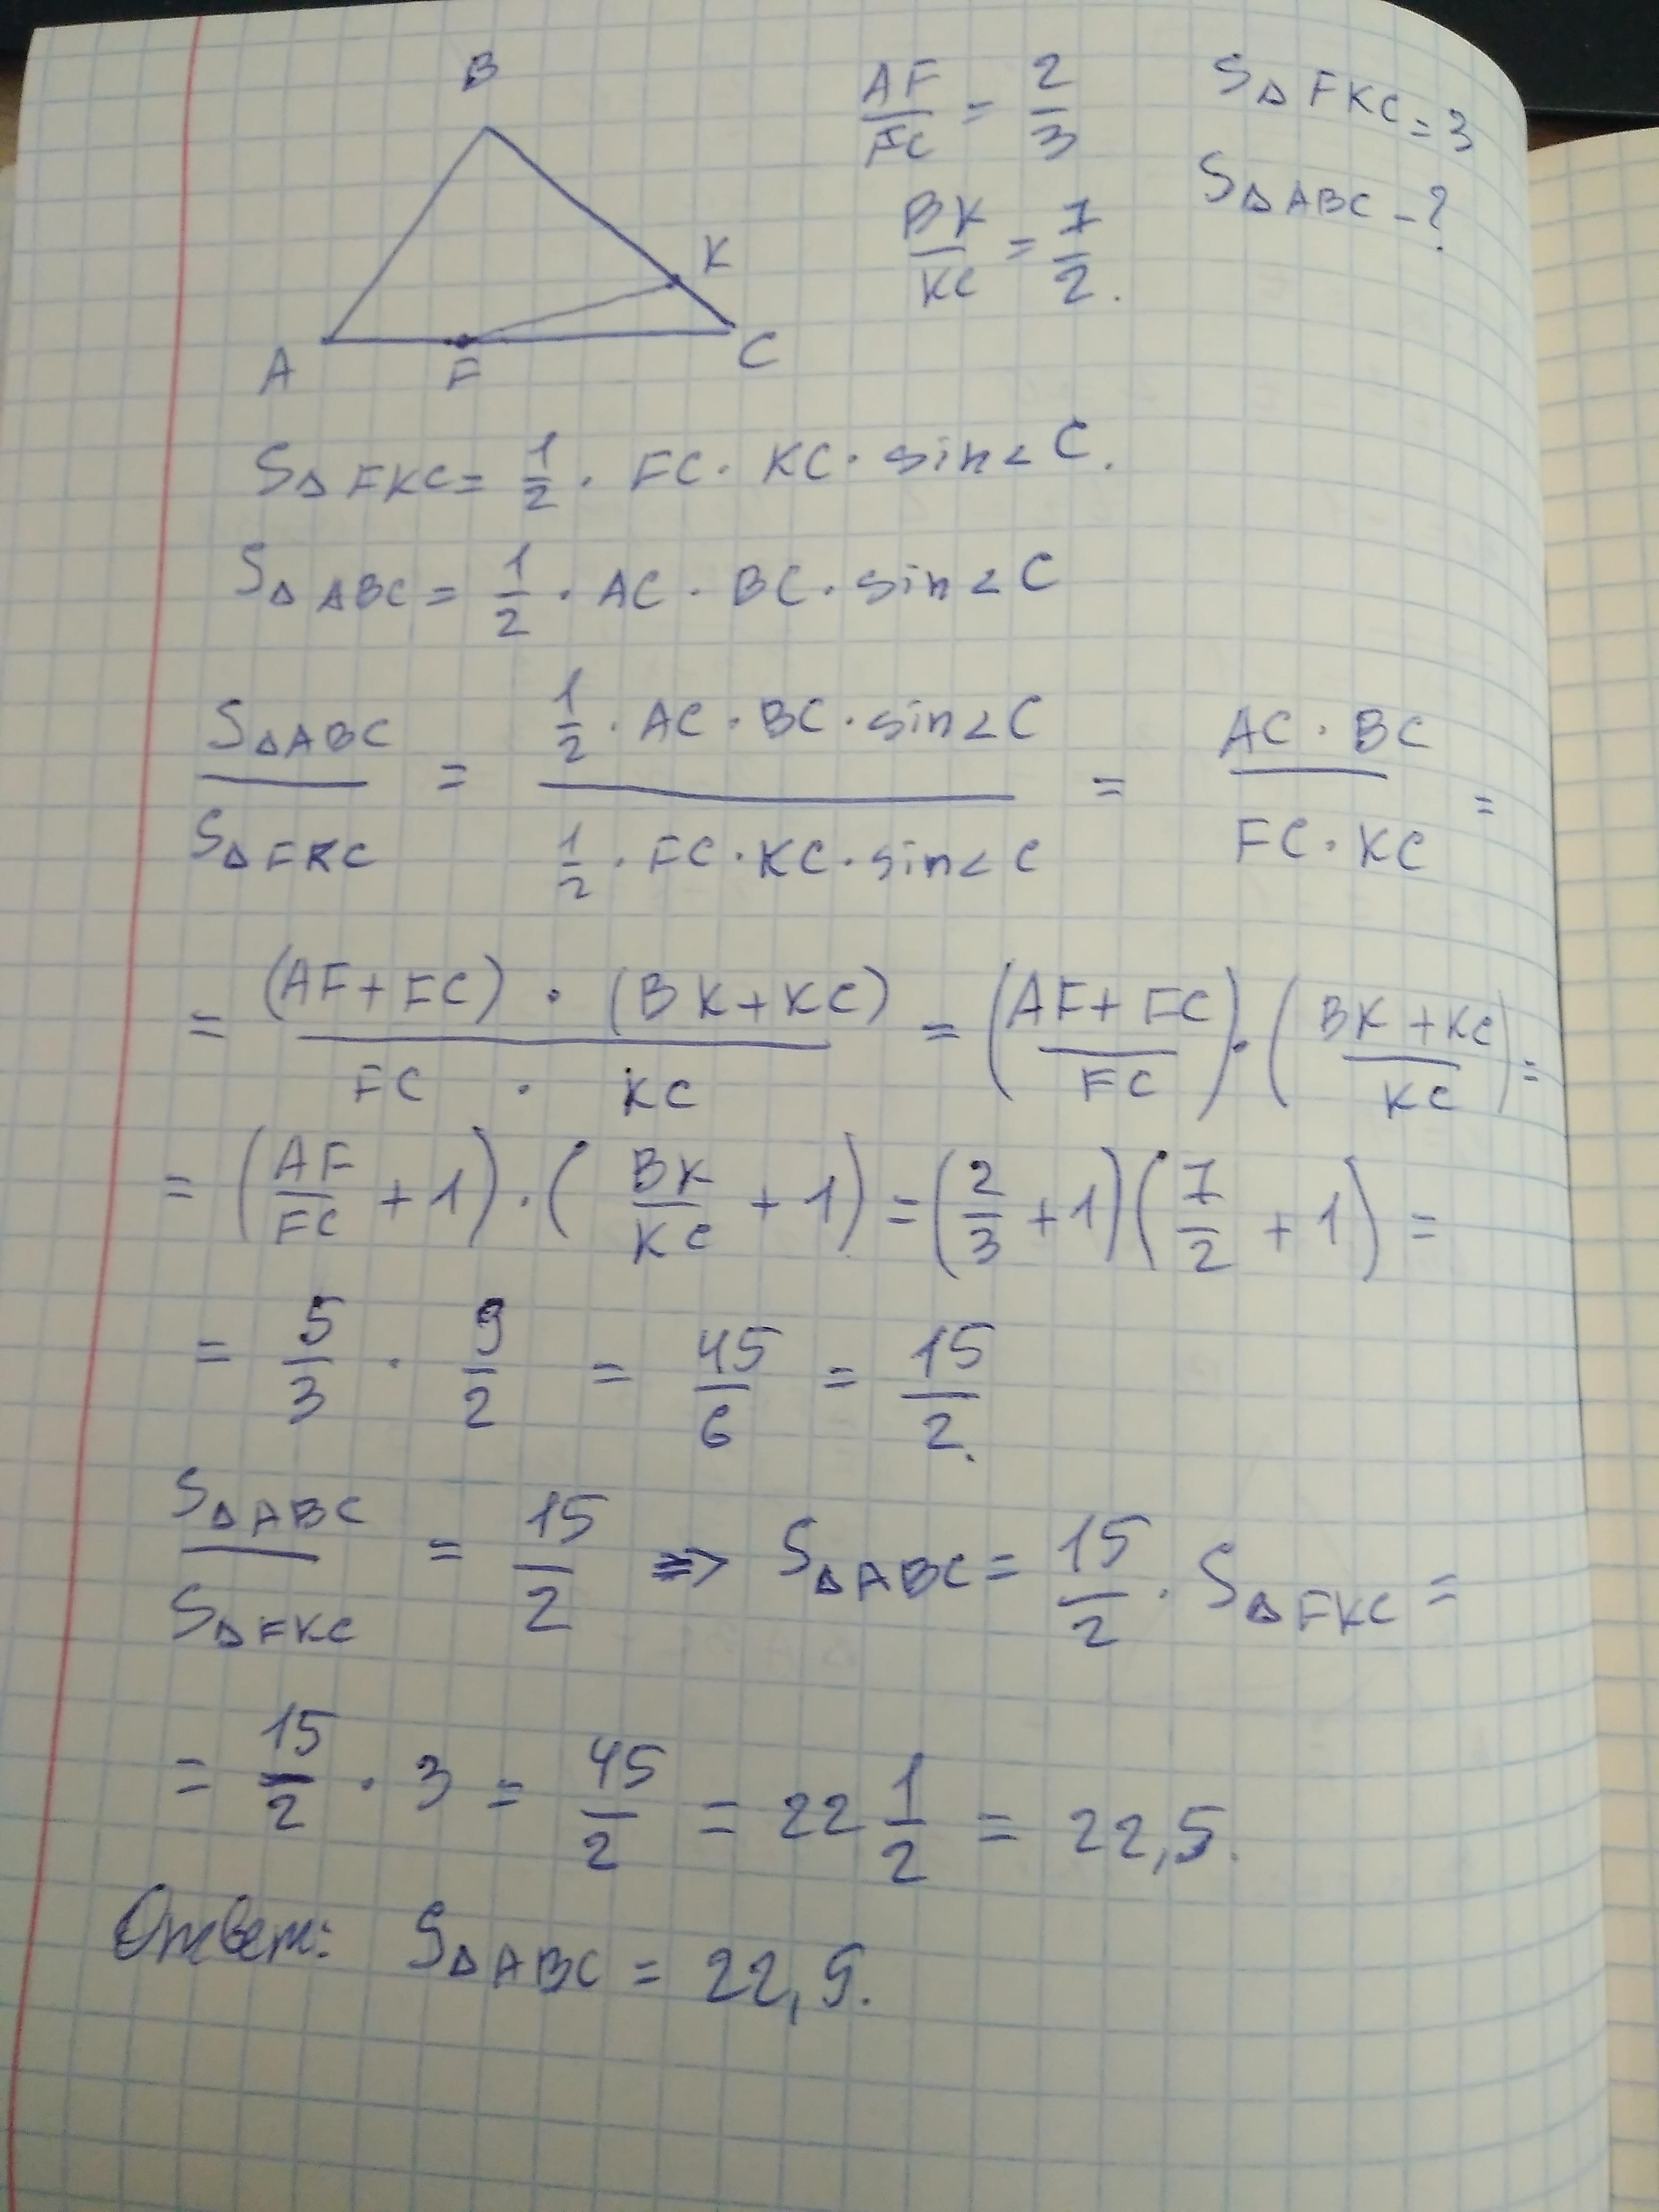 B
K
A
F
C
AF/FC = 2/3
S△FKC = 3
BK/KC = 7/2.
S△ABC - ?
S△FKC = 1/2 · FC · KC · sin∠C.
S△ABC = 1/2 · AC · BC · sin∠C
S△ABC/S△FKC = (1/2 · AC · BC · sin∠C)/(1/2 · FC · KC · sin∠C) = (AC · BC)/(FC · KC) =
= ((AF + FC) · (BK + KC))/(FC · KC) = ((AF + FC)/FC) · ((BK + KC)/KC) =
= (AF/FC + 1) · (BK/KC + 1) = (2/3 + 1)(7/2 + 1) =
= 5/3 · 9/2 = 45/6 = 15/2.
S△ABC/S△FKC = 15/2 => S△ABC = 15/2 · S△FKC =
= 15/2 · 3 = 45/2 = 22 1/2 = 22,5.
Ответ: S△ABC = 22,5.